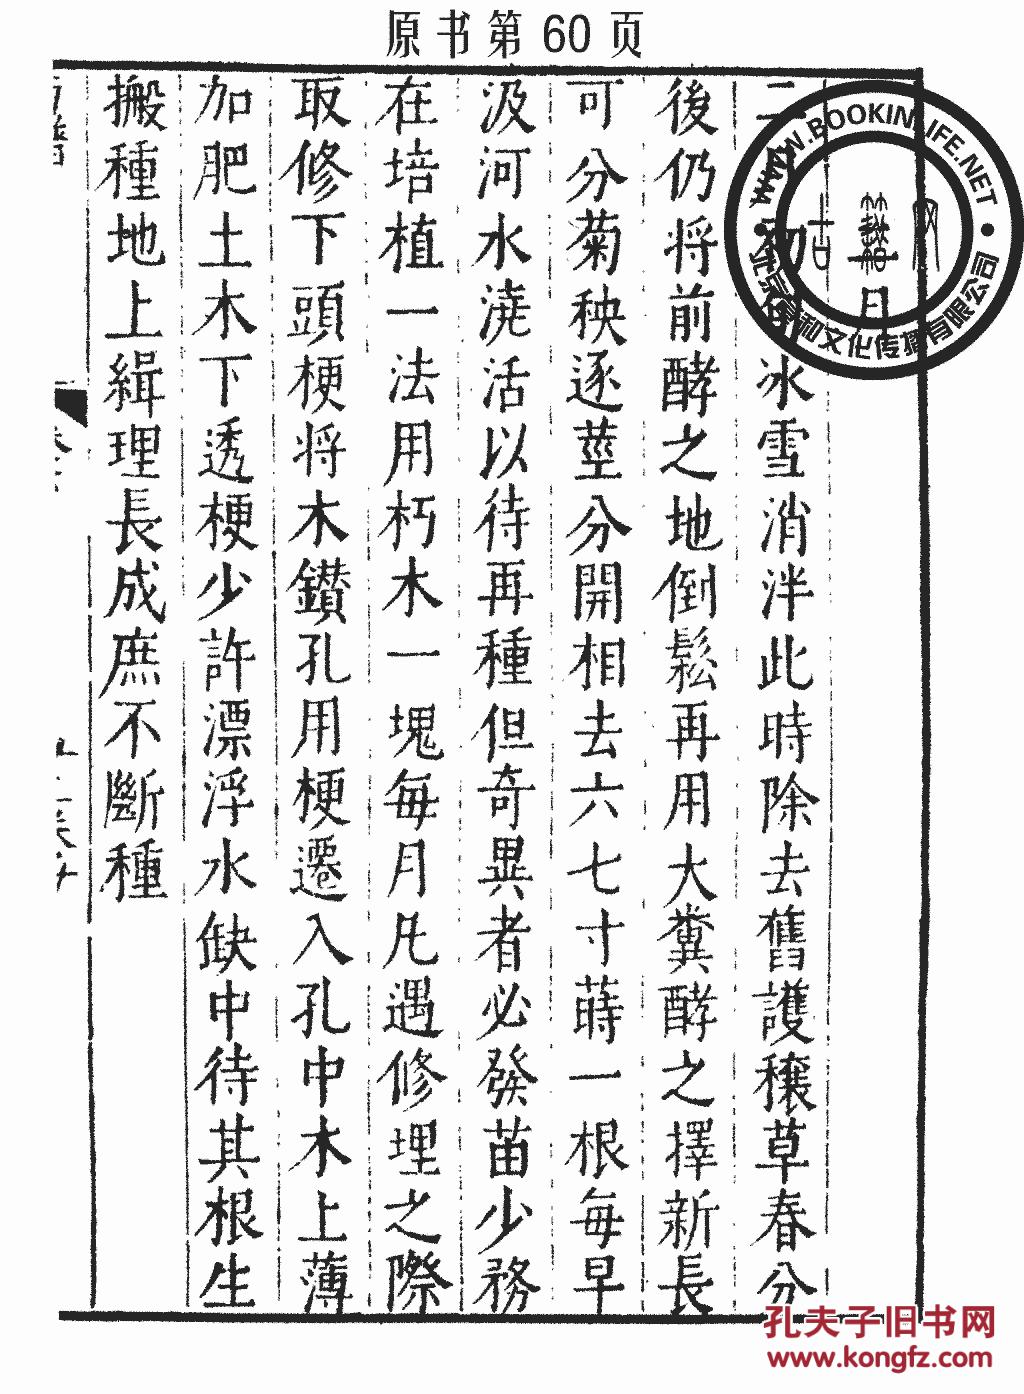 原书第60页
二月初旬冰雪消泮此時除去舊護穣草春分
後仍将前酵之地倒鬆再用大糞酵之擇新長
可分菊秧逐莖分開相去六七寸蒔一根每早
汲河水澆活以待再種但奇異者必發苗少務
在培植一法用朽木一塊每月凡遇修理之際
取修下頭梗将木鑽孔用梗遷入孔中木上薄
加肥土木下透梗少許漂浮水缺中待其根生
搬種地上緝理長成庶不斷種
WWW.BOOKINLIFE.NET
月
孔夫子旧书网
www.kongfz.com